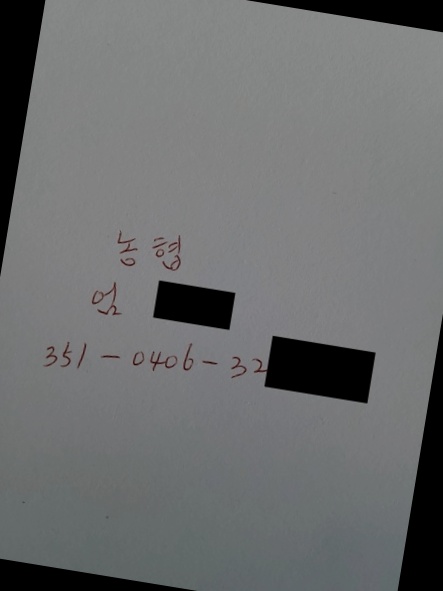 농협
엄
351-0406-32